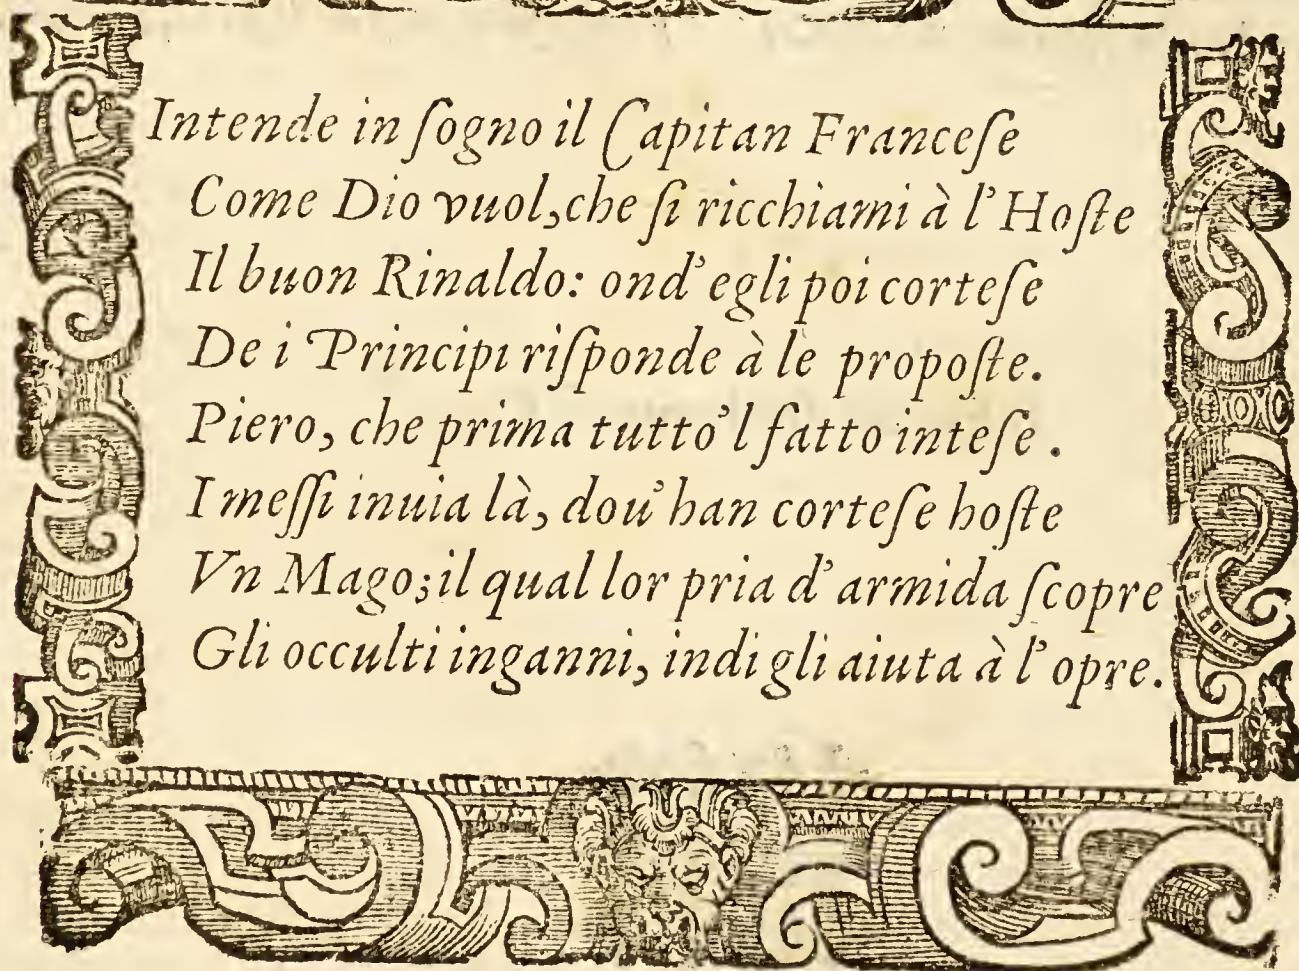 Intende in ſogno il Capitan Franceſe
Come Dio vuol, che ſi ricchiami à l'Hoſte
Il buon Rinaldo: ond' egli poi corteſe
De i Principi riſponde à le propoſte.
Piero, che prima tutto'l fatto inteſe.
I meſſi inuia là, dou' han corteſe hoſte
Vn Mago; il qual lor pria d'armida ſcopre
Gli occulti inganni, indi gli aiuta à l'opre.